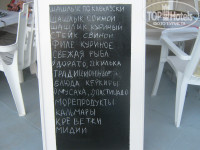 ШАШЛЫК ПО КАВКАЗСКИ
ШАШЛЫК СВИНОЙ
ШАШЛЫК КУРИНЫЙ
СТЕЙК СВИНОЙ
ФИЛЕ КУРИНОЕ
СВЕЖАЯ РЫБА
ДОРАТО,
ТРАДИЦИОННЫЕ
БЛЮДА КЕРКИРЫ
МУСАКА, ПАСТИЦАДО
МОРЕПРОДУКТЫ
КАЛЬМАРЫ
КРЕВЕТКИ
МИДИИ
TopHotels